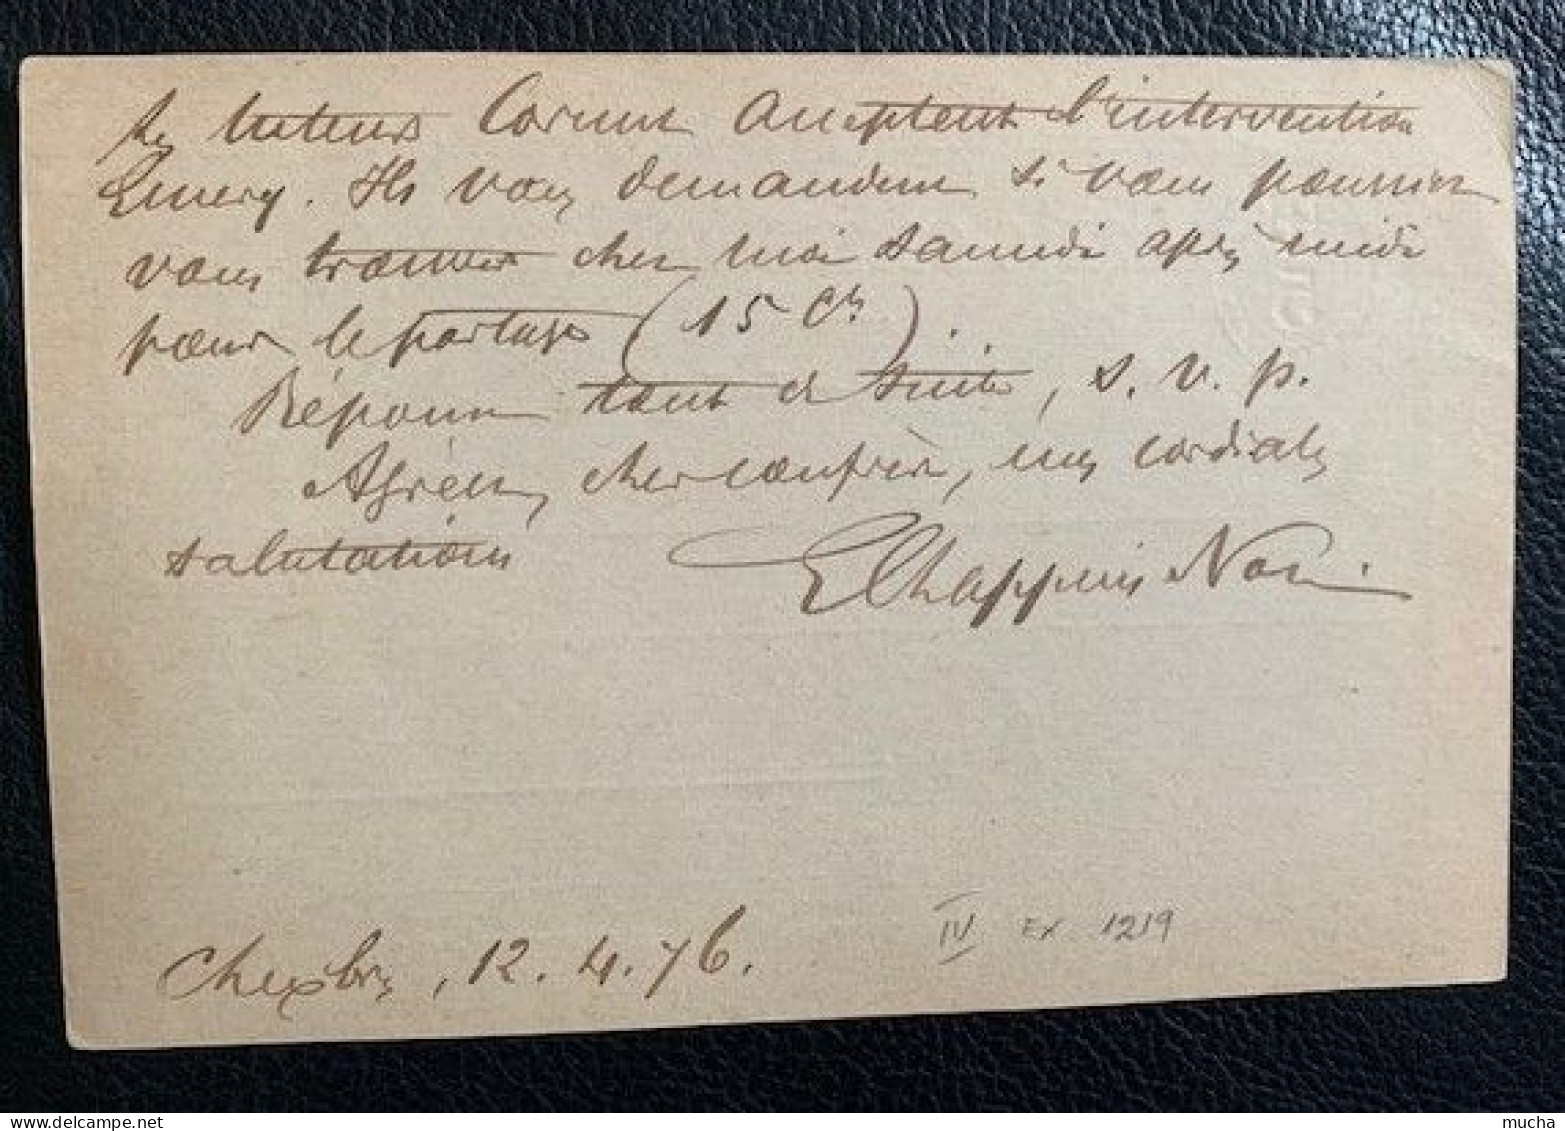 Les tuteurs Cornut acceptent l'intervention
Emery. Ils vous demandent si vous pourriez
vous trouver chez moi samedi après midi
pour le partage (15 ct).
Réponse tout de suite, s. v. p.
Agréez, cher confrère, mes cordiales
salutations
E Chappuis Not.
Chexbres, 12. 4. 76.
IV Ex 1219
www.delcampe.net
mucha